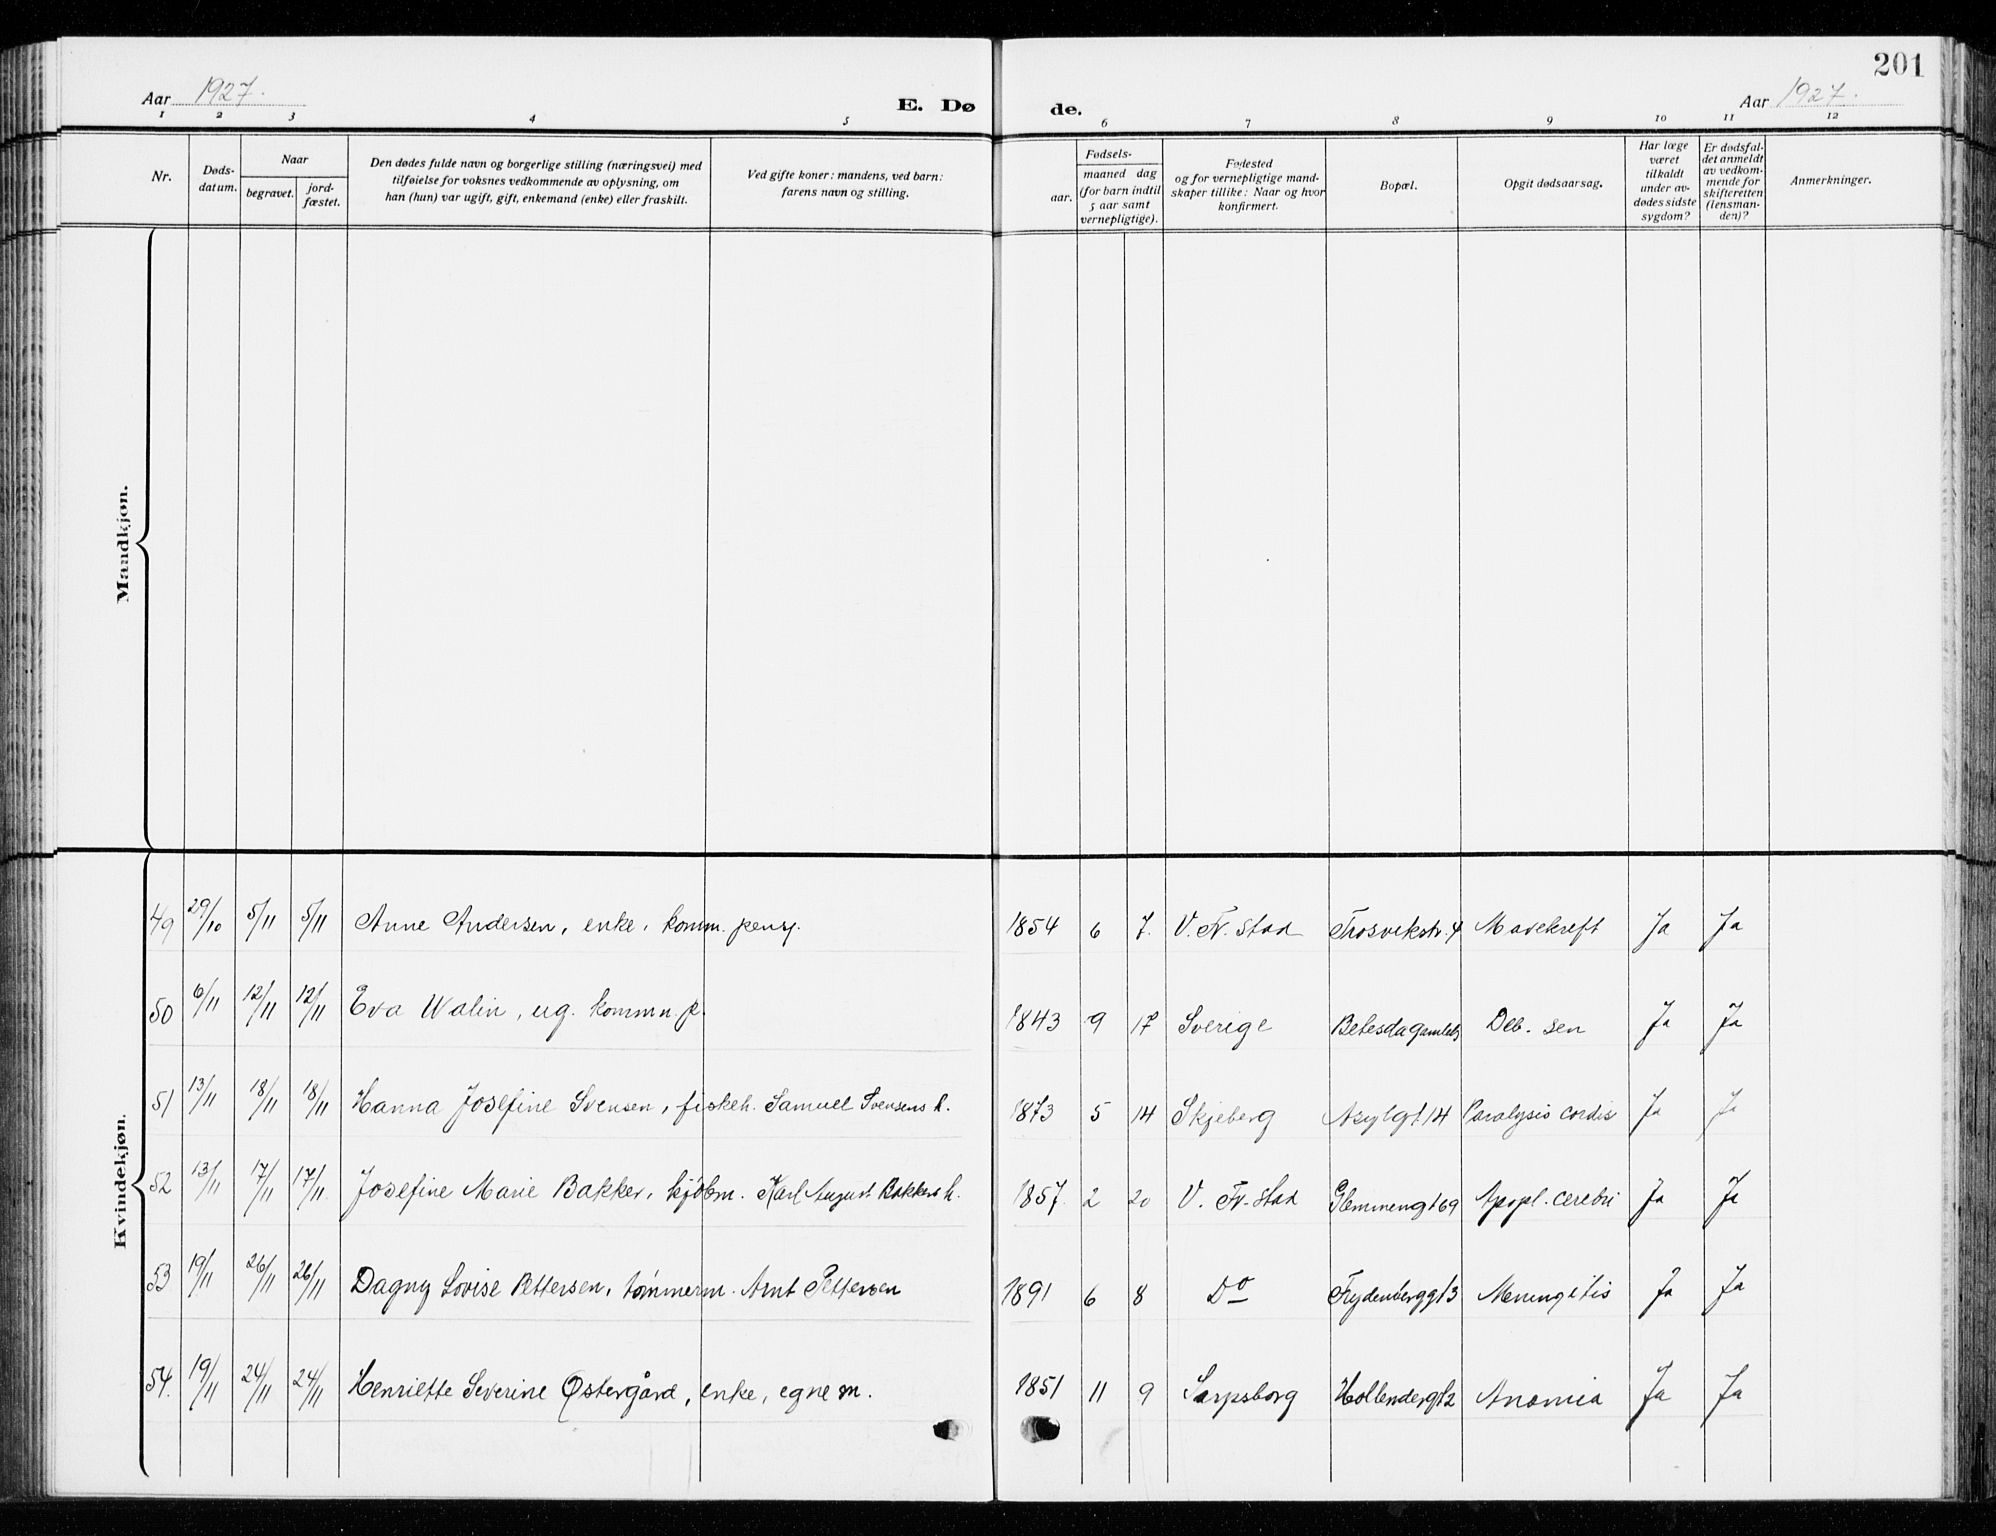 201
Aar 1927.
E. Dø
de.
Aar 1927.
1 2 3 4 5 6 7 8 9 10 11 12
Nr.
Døds-
datum.
Naar
begravet.
jord-
fæstet.
Den dødes fulde navn og borgerlige stilling (næringsvei) med
tilføielse for voksnes vedkommende av oplysning, om
han (hun) var ugift, gift, enkemand (enke) eller fraskilt.
Ved gifte koner: mandens, ved barn:
farens navn og stilling.
Fødsels-
aar.
maaned dag
(for barn indtil
5 aar samt
vernepligtige).
Fødested
og for vernepligtige mand-
skaper tillike: Naar og hvor
konfirmert.
Bopæl.
Opgit dødsaarsag.
Har læge
været
tilkaldt
under av-
dødes sidste
sygdom?
Er dødsfal-
det anmeldt
av vedkom-
mende for
skifteretten
(lensman-
den)?
Anmerkninger.
Mandkjøn.
Kvindekjøn.
49 29/10 5/11 5/11 Anne Andersen, enke, komm. pensj. 1854 6 7. V. Fr. stad Trosvikstr. 4 Mavekreft Ja Ja
50 6/11 12/11 12/11 Eva Walin, ug. kommn. p. 1843 9 17 Sverige Betesda Gamleby Deb. sen Ja Ja
51 13/11 18/11 18/11 Hanna Josefine Svensen, fiskeh. Samuel Svensens h. 1873 5 14 Skjeberg Asylgt 14 Paralysis cordis Ja Ja
52 13/11 17/11 17/11. Josefine Marie Bakker, kjøbm. Karl August Bakkers h. 1857. 2 20 V. Fr. stad Glemmengt 69 Apopl. cerebri Ja Ja
53 19/11 26/11 26/11 Dagny Lovise Pettersen, tømmerm. Arnt Pettersen 1891 6 8 Do Frydenberggt 3 Meningitis Ja Ja
54. 19/11 24/11 24/11 Henriette Severine Østergård, enke, egne m. 1851 11 9 Sarpsborg Hollendergt 2 Anæmia Ja Ja